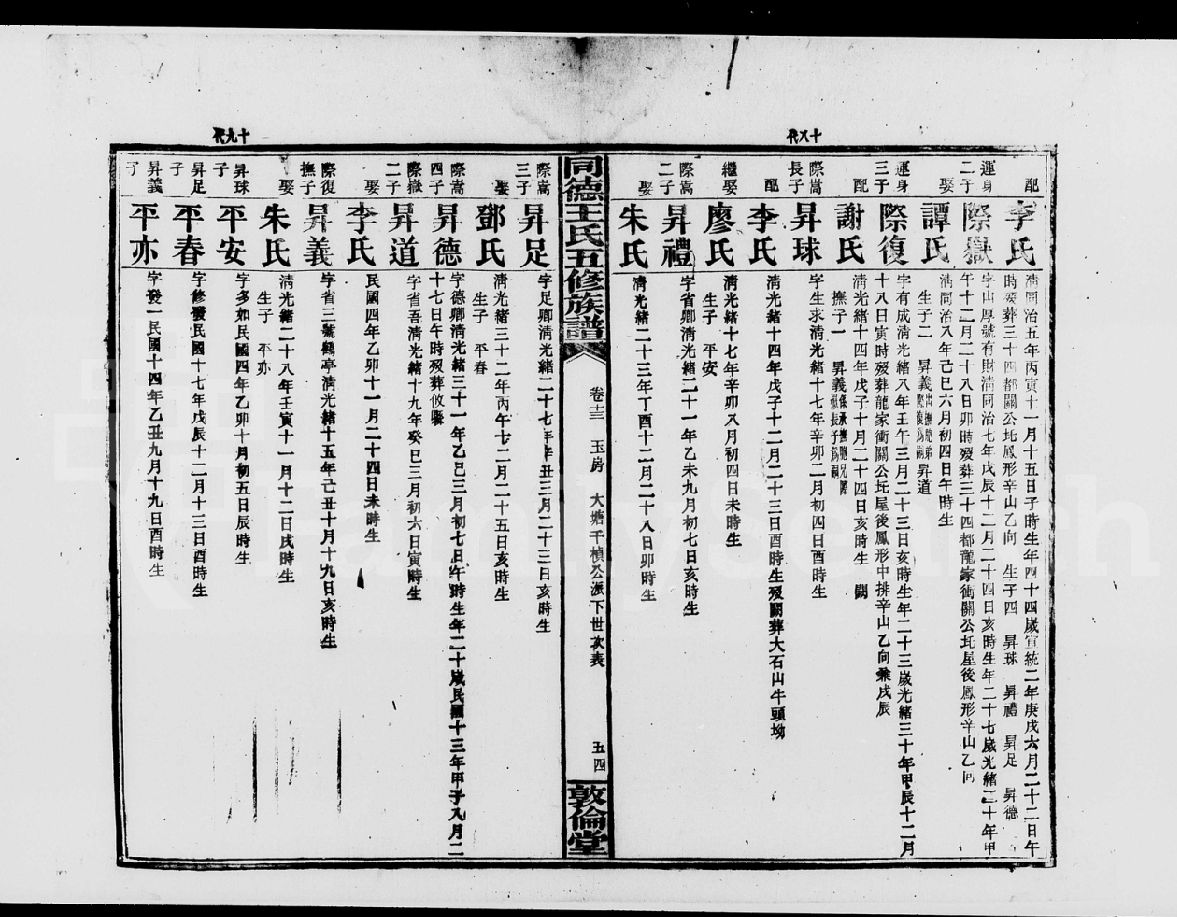 十八代
配
李氏
清同治五年丙寅十一月十五日子時生年四十四歲宣統二年庚戌六月二十二日午
時歿葬三十四都關公圫鳳形辛山乙向 生子四 昇球 昇禮 昇足 昇德
運身
二子
際嶽
字山厚號有財清同治七年戊辰十二月二十四日亥時生年二十七歲光緒二十年甲
午十二月二十八日卯時歿葬三十四都龍家衝關公圫屋後鳳形辛山乙向
娶
譚氏
清同治八年己巳六月初四日午時生
生子二 昇義 昇道
運身
三子
際復
字有成清光緒八年壬午三月二十三日亥時生年二十三歲光緒三十年甲辰十二月
十八日寅時歿葬龍家衝關公圫屋後鳳形中排辛山乙向兼戌辰
配
謝氏
清光緒十四年戊子十月二十四日亥時生 闕
撫子一 昇義
際嵩
長子
昇球
字生求清光緒十七年辛卯二月初四日酉時生
配
李氏
清光緒十四年戊子十二月二十三日酉時生歿闕葬大石山牛頭坳
繼娶
廖氏
清光緒十七年辛卯八月初四日未時生
生子 平安
際嵩
二子
昇禮
字省卿清光緒二十一年乙未九月初七日亥時生
娶
朱氏
清光緒二十三年丁酉十二月二十八日卯時生
同德王氏五修族譜
卷十三 玉房 大塘千楨公派下世次表 五四
敦倫堂
十九代
際嵩
三子
昇足
字足卿清光緒二十七年辛丑三月二十三日亥時生
娶
鄧氏
清光緒三十二年丙午十二月二十五日亥時生
生子 平春
際嵩
四子
昇德
字德卿清光緒三十一年乙巳三月初七日午時生年二十歲民國十三年甲子八月二
十七日午時歿葬攸縣
際嶽
二子
昇道
字省吾清光緒十九年癸巳三月初六日寅時生
娶
李氏
民國四年乙卯十一月二十四日未時生
際復
撫子
昇義
字省三號鶴亭清光緒十五年己丑十月十九日亥時生
娶
朱氏
清光緒二十八年壬寅十一月十二日戌時生
生子 平亦
昇球
子
平安
字多如民國四年乙卯十月初五日辰時生
昇足
子
平春
字修發民國十七年戊辰十二月十三日酉時生
昇義
子
平亦
字發一民國十四年乙丑九月十九日酉時生
FamilySearch